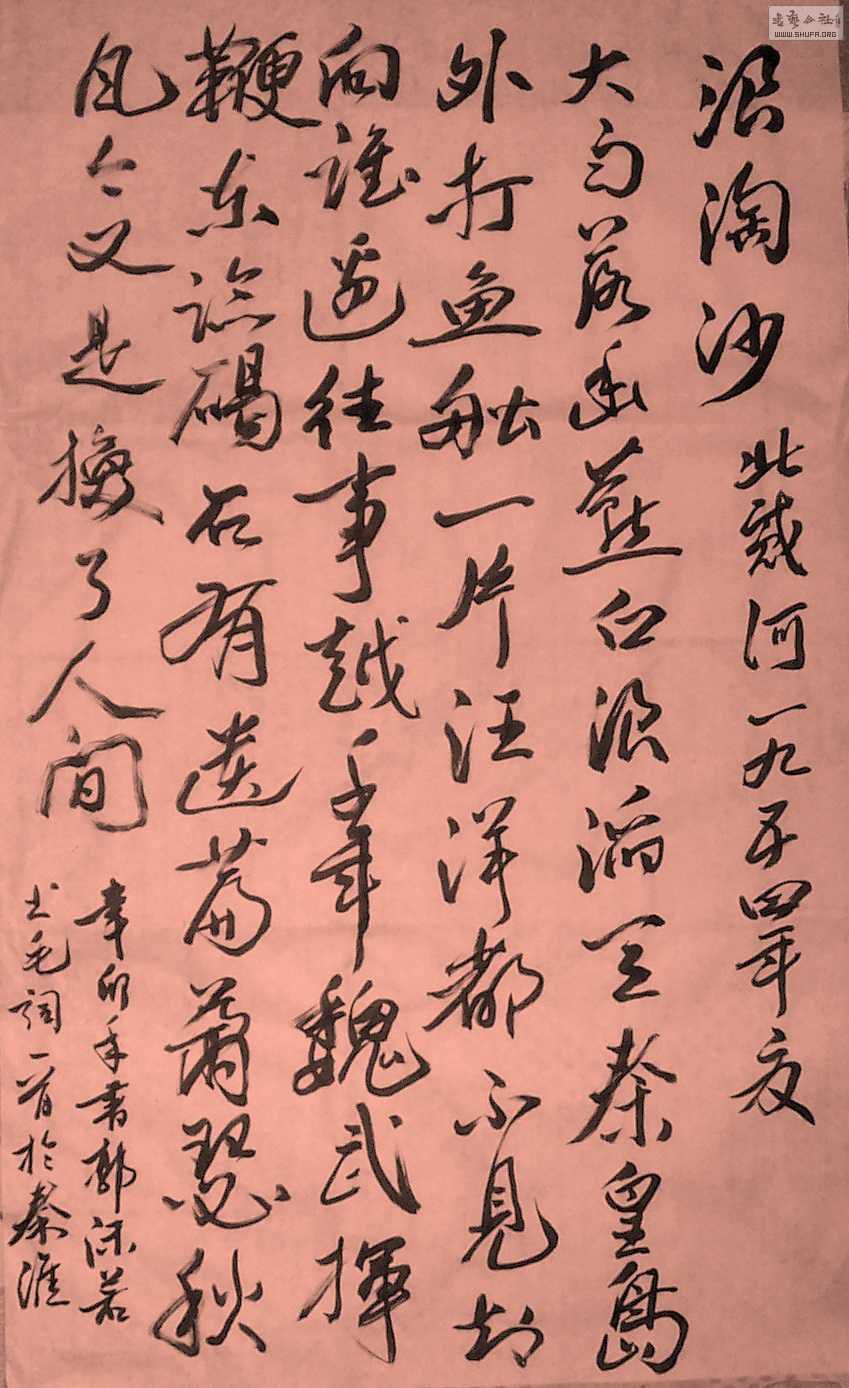 書藝公社
WWW.SHUFA.ORG
浪淘沙 北戴河一九五四年夏
大雨落幽燕白浪滔天秦皇島
外打鱼船一片汪洋都不見知
向誰邊往事越千年魏武揮
鞭东临碣石有遗篇蕭瑟秋
风今又是換了人间
辛卯年書郭沫若
书毛詞一首於秦淮